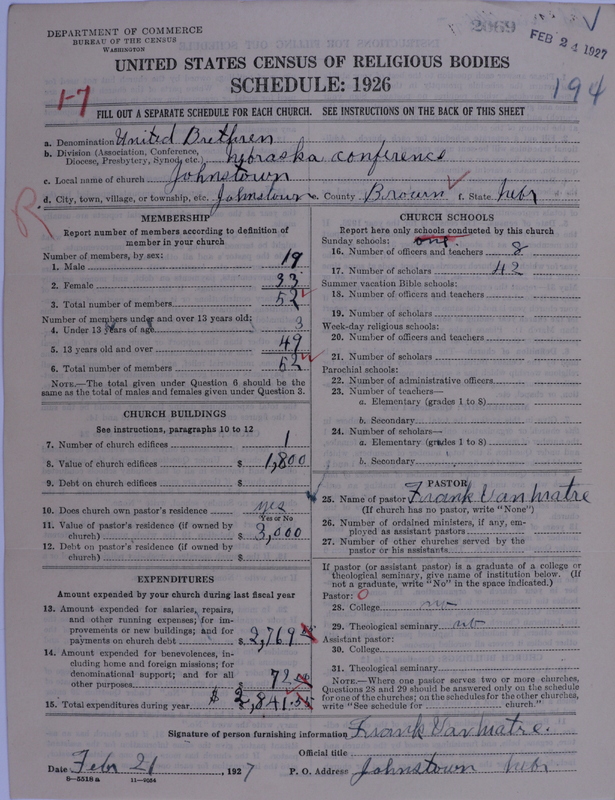 DEPARTMENT OF COMMERCE
BUREAU OF THE CENSUS
WASHINGTON
FEB 24 1927
UNITED STATES CENSUS OF RELIGIOUS BODIES
SCHEDULE: 1926
1-7
194
FILL OUT A SEPARATE SCHEDULE FOR EACH CHURCH. SEE INSTRUCTIONS ON THE BACK OF THIS SHEET
a. Denomination United Brethren
b. Division (Association, Conference, Diocese, Presbytery, Synod, etc.) Nebraska conference
c. Local name of church Johnstown
d. City, town, village, or township, etc. Johnstown e. County Brown f. State Nebr
R
MEMBERSHIP
Report number of members according to definition of member in your church
Number of members, by sex:
1. Male 19
2. Female 33
3. Total number of members 52
Number of members under and over 13 years old:
4. Under 13 years of age 3
5. 13 years old and over 49
6. Total number of members 52
NOTE.—The total given under Question 6 should be the same as the total of males and females given under Question 3.
CHURCH BUILDINGS
See instructions, paragraphs 10 to 12
7. Number of church edifices 1
8. Value of church edifices $ 1,800
9. Debt on church edifices $
10. Does church own pastor's residence yes
Yes or No
11. Value of pastor's residence (if owned by church) $ 3,000
12. Debt on pastor's residence (if owned by church) $
EXPENDITURES
Amount expended by your church during last fiscal year
13. Amount expended for salaries, repairs, and other running expenses; for improvements or new buildings; and for payments on church debt $ 2,769
14. Amount expended for benevolences, including home and foreign missions; for denominational support; and for all other purposes $ 72
15. Total expenditures during year $ 2,841
CHURCH SCHOOLS
Report here only schools conducted by this church
Sunday schools: one
16. Number of officers and teachers 8
17. Number of scholars 42
Summer vacation Bible schools:
18. Number of officers and teachers
19. Number of scholars
Week-day religious schools:
20. Number of officers and teachers
21. Number of scholars
Parochial schools:
22. Number of administrative officers
23. Number of teachers—
a. Elementary (grades 1 to 8)
b. Secondary
24. Number of scholars—
a. Elementary (grades 1 to 8)
b. Secondary
PASTOR
25. Name of pastor Frank VanMatre
(If church has no pastor, write "None")
26. Number of ordained ministers, if any, employed as assistant pastors
27. Number of other churches served by the pastor or his assistants
If pastor (or assistant pastor) is a graduate of a college or theological seminary, give name of institution below. (If not a graduate, write "No" in the space indicated.)
Pastor: O
28. College no
29. Theological seminary no
Assistant pastor:
30. College
31. Theological seminary
NOTE.—Where one pastor serves two or more churches, Questions 28 and 29 should be answered only on the schedule for one of the churches; on the schedules for the other churches, write "See schedule for church."
Signature of person furnishing information Frank VanMatre.
Official title
Date Febr 21, 1927 P. O. Address Johnstown Nebr
8—5518 a 11—9054